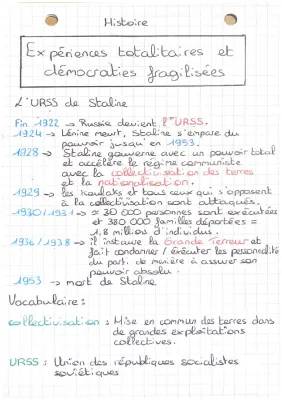 Histoire
Expériences totalitaires et
démocraties fragilisées
L'URSS de Staline
Fin 1922 → Russie devient l'URSS.
1924 → Lénine meurt, Staline s'empare du
pouvoir jusqu'en 1953.
1928 → Staline gouverne avec un pouvoir total
et accélère le régime communiste
avec la collectivisation des terres
et la nationalisation.
1929 → les Koulaks et tous ceux qui s'opposent
à la collectivisation sont attaqués.
1930/1931 → ≈ 30 000 personnes sont exécutées
et 380 000 familles déportées =
1,8 millions d'individus.
1936/1938 → il instaure la Grande Terreur et
fait condamner / exécuter les personnalité
du parti de manière à assurer son
pouvoir absolu.
1953 → mort de Staline
Vocabulaire :
collectivisation : Mise en commun des terres dans
de grandes exploitations
collectives.
URSS : Union des républiques socialistes
soviétiques